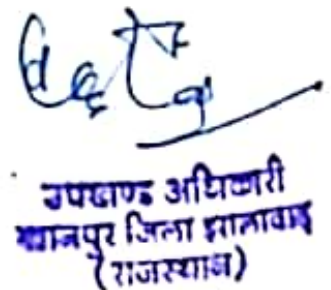 उपखण्ड अधिकारी
खानपुर जिला झालावाड़
(राजस्थान)